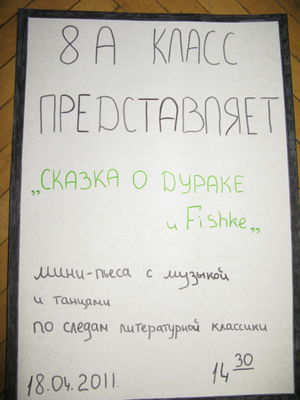 8 А КЛАСС
ПРЕДСТАВЛЯЕТ
„СКАЗКА О ДУРАКЕ
и Fishke„
мини-пьеса с музыкой
и танцами
по следам литературной классики
18.04.2011. 14 30